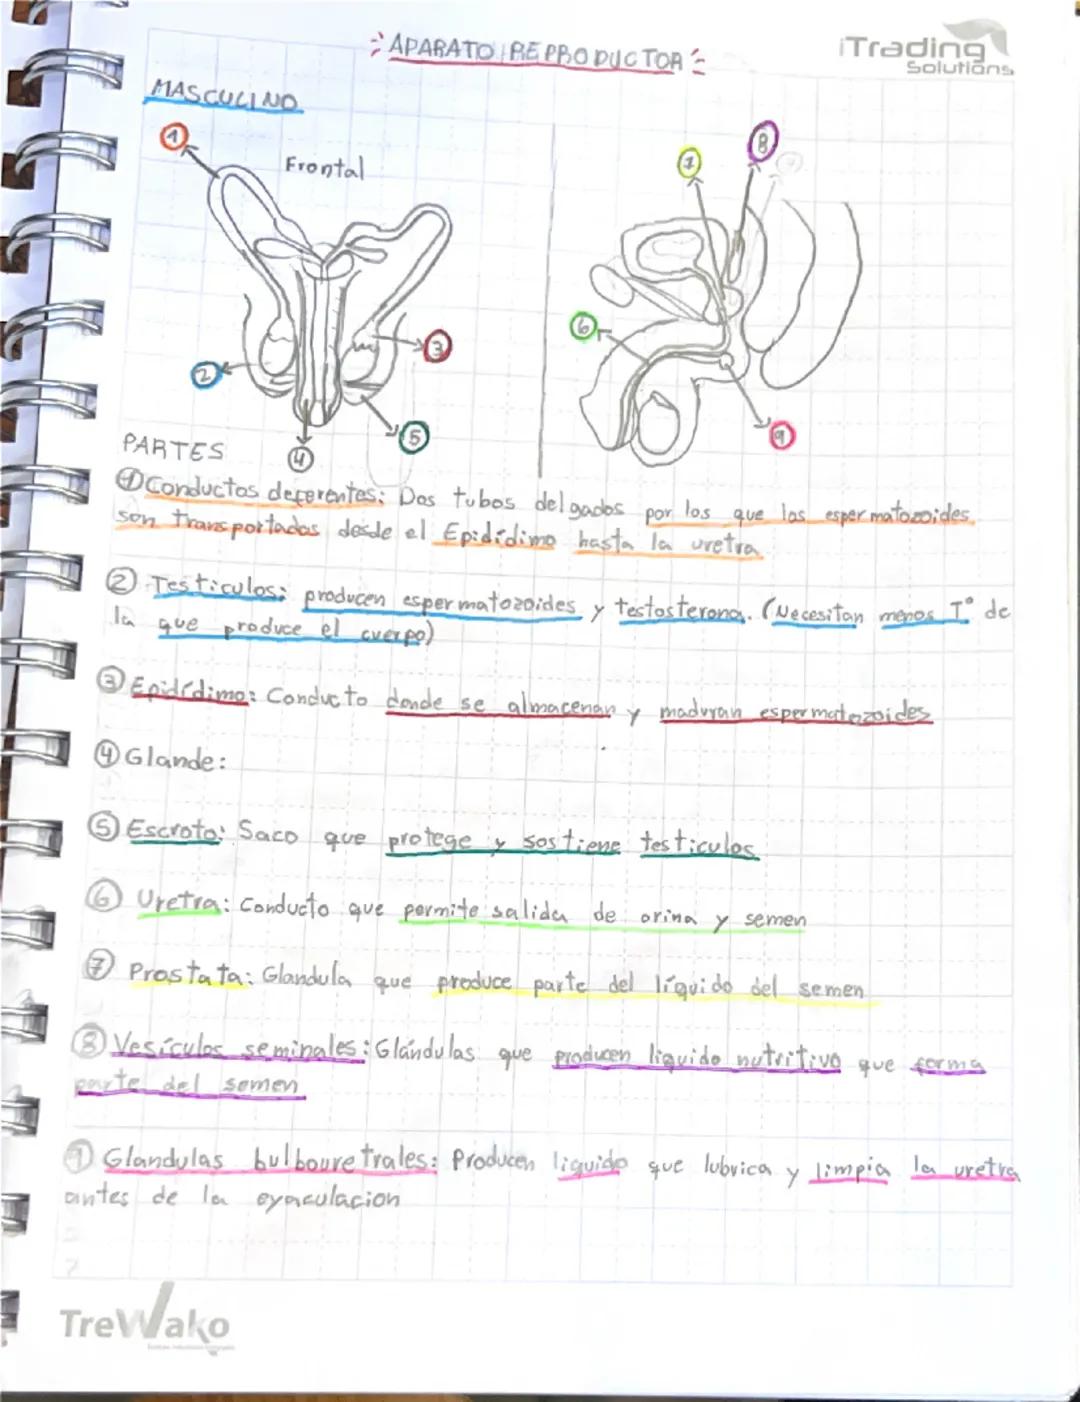 APARATO REPRODUCTOR
iTrading
Solutions
MASCULINO
1
Frontal
7
8
6
3
2
5
4
9
PARTES
① Conductos deferentes: Dos tubos delgados por los que los espermatozoides
son transportados desde el Epidídimo hasta la uretra
② Testiculos: producen espermatozoides y testosterona. (Necesitan menos T° de
la que produce el cuerpo)
③ Epidídimo: Conducto donde se almacenan y maduran espermatozoides
④ Glande:
⑤ Escroto: Saco que protege y sostiene testiculos
⑥ Uretra: Conducto que permite salida de orina y semen
⑦ Prostata: Glandula que produce parte del líquido del semen
⑧ Vesículas seminales: Glándulas que producen liquido nutritivo que forma
parte del semen
⑨ Glandulas bulbouretrales: Producen liquido que lubrica y limpia la uretra
antes de la eyaculacion
TreWako